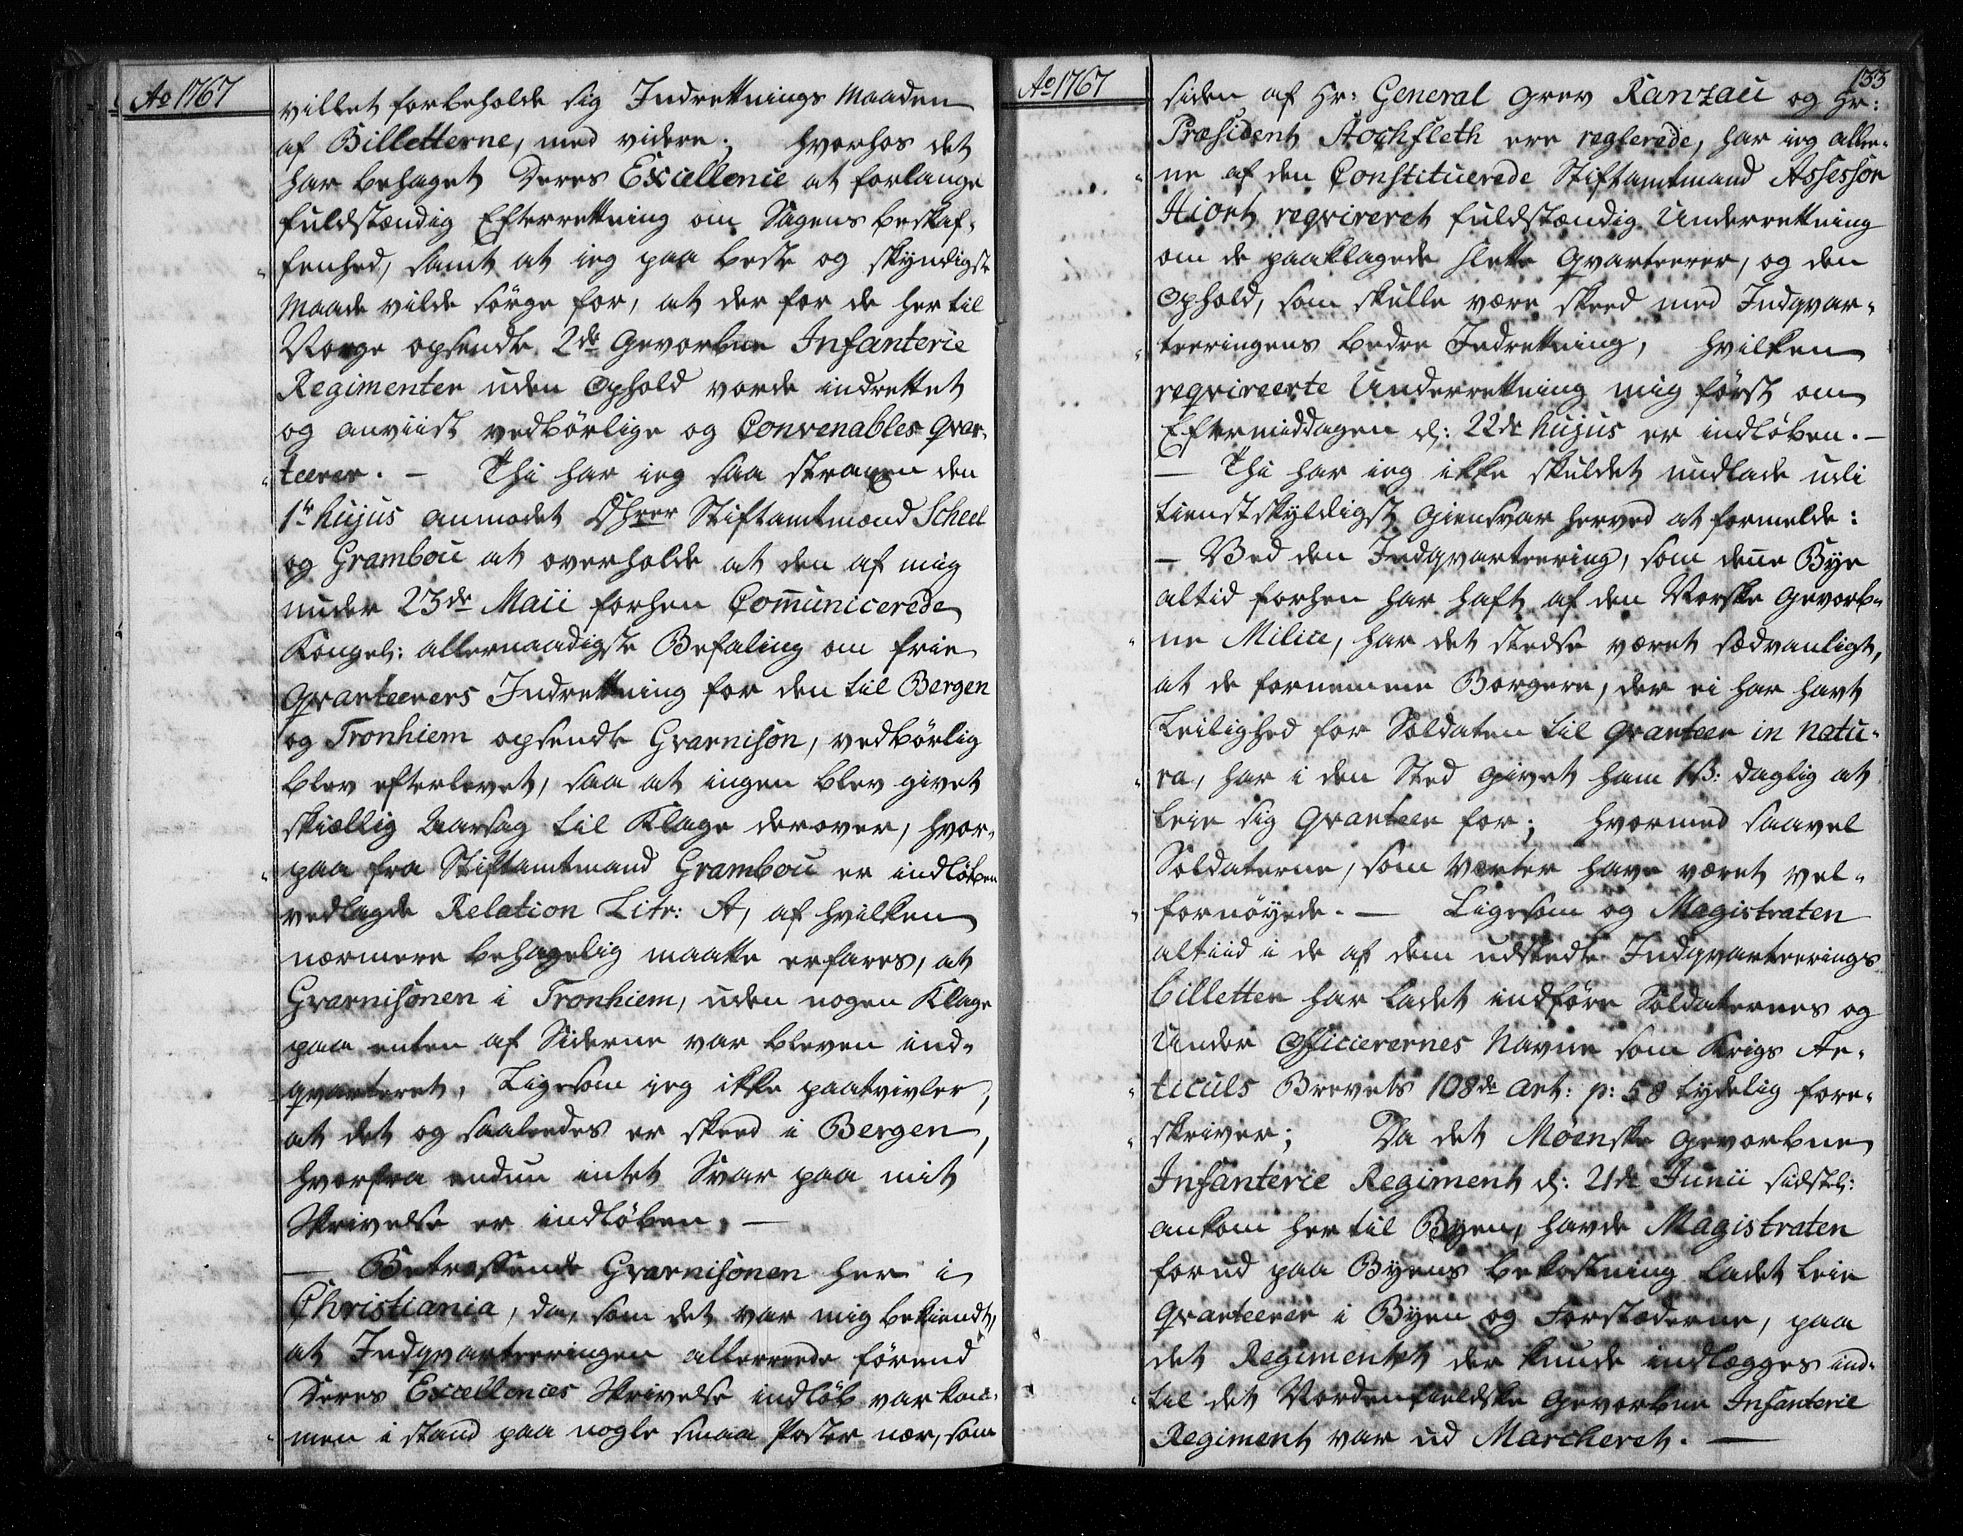 Ao 1767
villet forbeholde sig Indrettnings Maaden
af Billetterne, med videre; hvorhos det
har behaget Deres Excellence at forlange
fuldstændig Efterrettning om Sagens beskaf-
fenhed, samt at ieg paa beste og skyndigste
Maade vilde sörge for, at der for de her til
Norge opsendte 2de Gevorbne Infanterie
Regimenter uden Ophold vorde indrettet
og anviist vedbörlige og Convenables Qvar-
teerer. — Thi har ieg saa straxen den
1te hujus anmodet DHrer Stiftamtmænd Scheel
og Grambou at overholde at den af mig
under 23de Maii forhen Com̄unicerede
Kongel: allernaadigste Befaling om frie
Qvarteerers Indrettning for den til Bergen
og Tronhiem opsendte Gvarnison, vedbörlig
blev efterlevet, saa at ingen blev givet
skiællig Aarsag til Klage derover, hvor-
paa fra Stiftamtmand Grambou er indlöben
vedlagde Relation Litr: A, af hvilken
nærmere behagelig maatte erfares, at
Gvarnisonen i Tronhiem, uden nogen Klage
paa enten af Siderne var bleven ind-
qvarteret, Ligesom jeg ikke paatvivler,
at det og saaledes er skeed i Bergen,
hvorfra endnu intet Svar paa mit
Skrivelse er indlöben. —
— Betreffende Gvarnisonen her i
Christiania, da, som det var mig bekiendt,
at Indqvarteeringen allerrede förend
Deres Excellences Skrivelse indlöb var kom-
men i stand paa nogle smaa Poster nær, som
Ao 1767
133
siden af Hr: General Grev Ranzau og Hr:
Præsident Hochfleth ere reglerede, har ieg allee-
ne af den Constituerede Stiftamtmand Assessor
Hiort reqvireret fuldstændig Underrettning
om de paaklagede slette Qvarteerer, og den
Ophold, som skulle være skeed med Indqvar-
teeringens bedre Indrettning, hvilken
reqvireerte Underrettning mig först om
Eftermiddagen d: 22de hujus er indlöben. —
— Thi har ieg ikke skuldet undlade udi
tienstskyldigst Giensvar herved at formelde:
— Ved den Indqvarteering, som denne Bye
altid forhen har haft af den Norske Gevorb-
ne Milice, har det stedse været sædvanligt,
at de fornemme Borgere, der ei har havt
Leilighed for Soldaten til Qvarteer in natu-
ra, har i den Sted givet ham 1 ß: daglig at
leie sig Qvarteer for; hvormed saavel
Soldaterne, som Verter have været vel-
fornöyede. — Ligesom og Magistraten
altiid i de af dem udstedte Indqvarteerings
billetter har ladet indföre Soldaternes og
Under Officierernes Navne som Krigs Ar-
ticuls Brevets 108de Art: p: 58 tydelig fore-
skriver; Da det Möenske Gevorbne
Infanterie Regiment d: 21de Junii sidstl:
ankom her til Byen, havde Magistraten
forud paa Byens bekostning ladet leie
Qvarteerer i Byen og Forstæderne, paa
det Regimentet der kunde indlægges ind-
til det Nordenfieldske Gevorbne Infanterie
Regiment var ud Marcheret. —